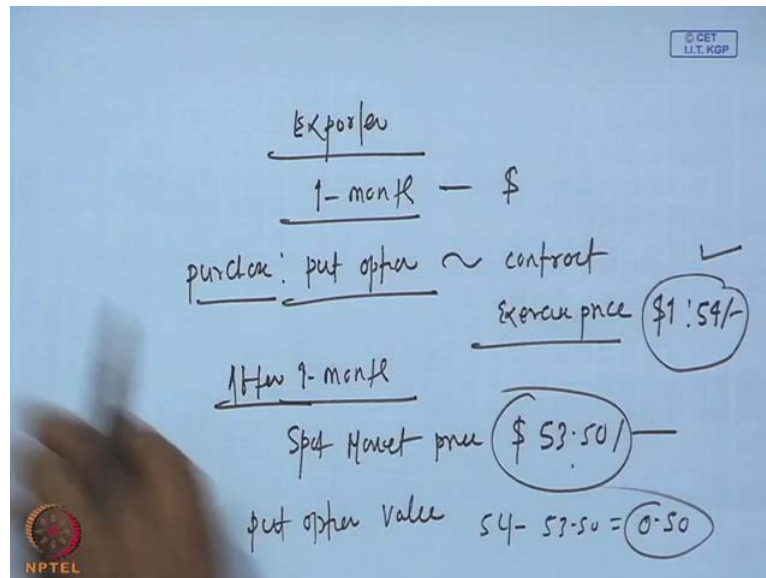 © CET
I.I.T. KGP
Exporter
1-month — $
purchase: put option ~ contract ✓
Exercise price $1:54/-
After 1-month
Spot Market price $ 53.50/—
put option value 54-53.50=0.50
NPTEL